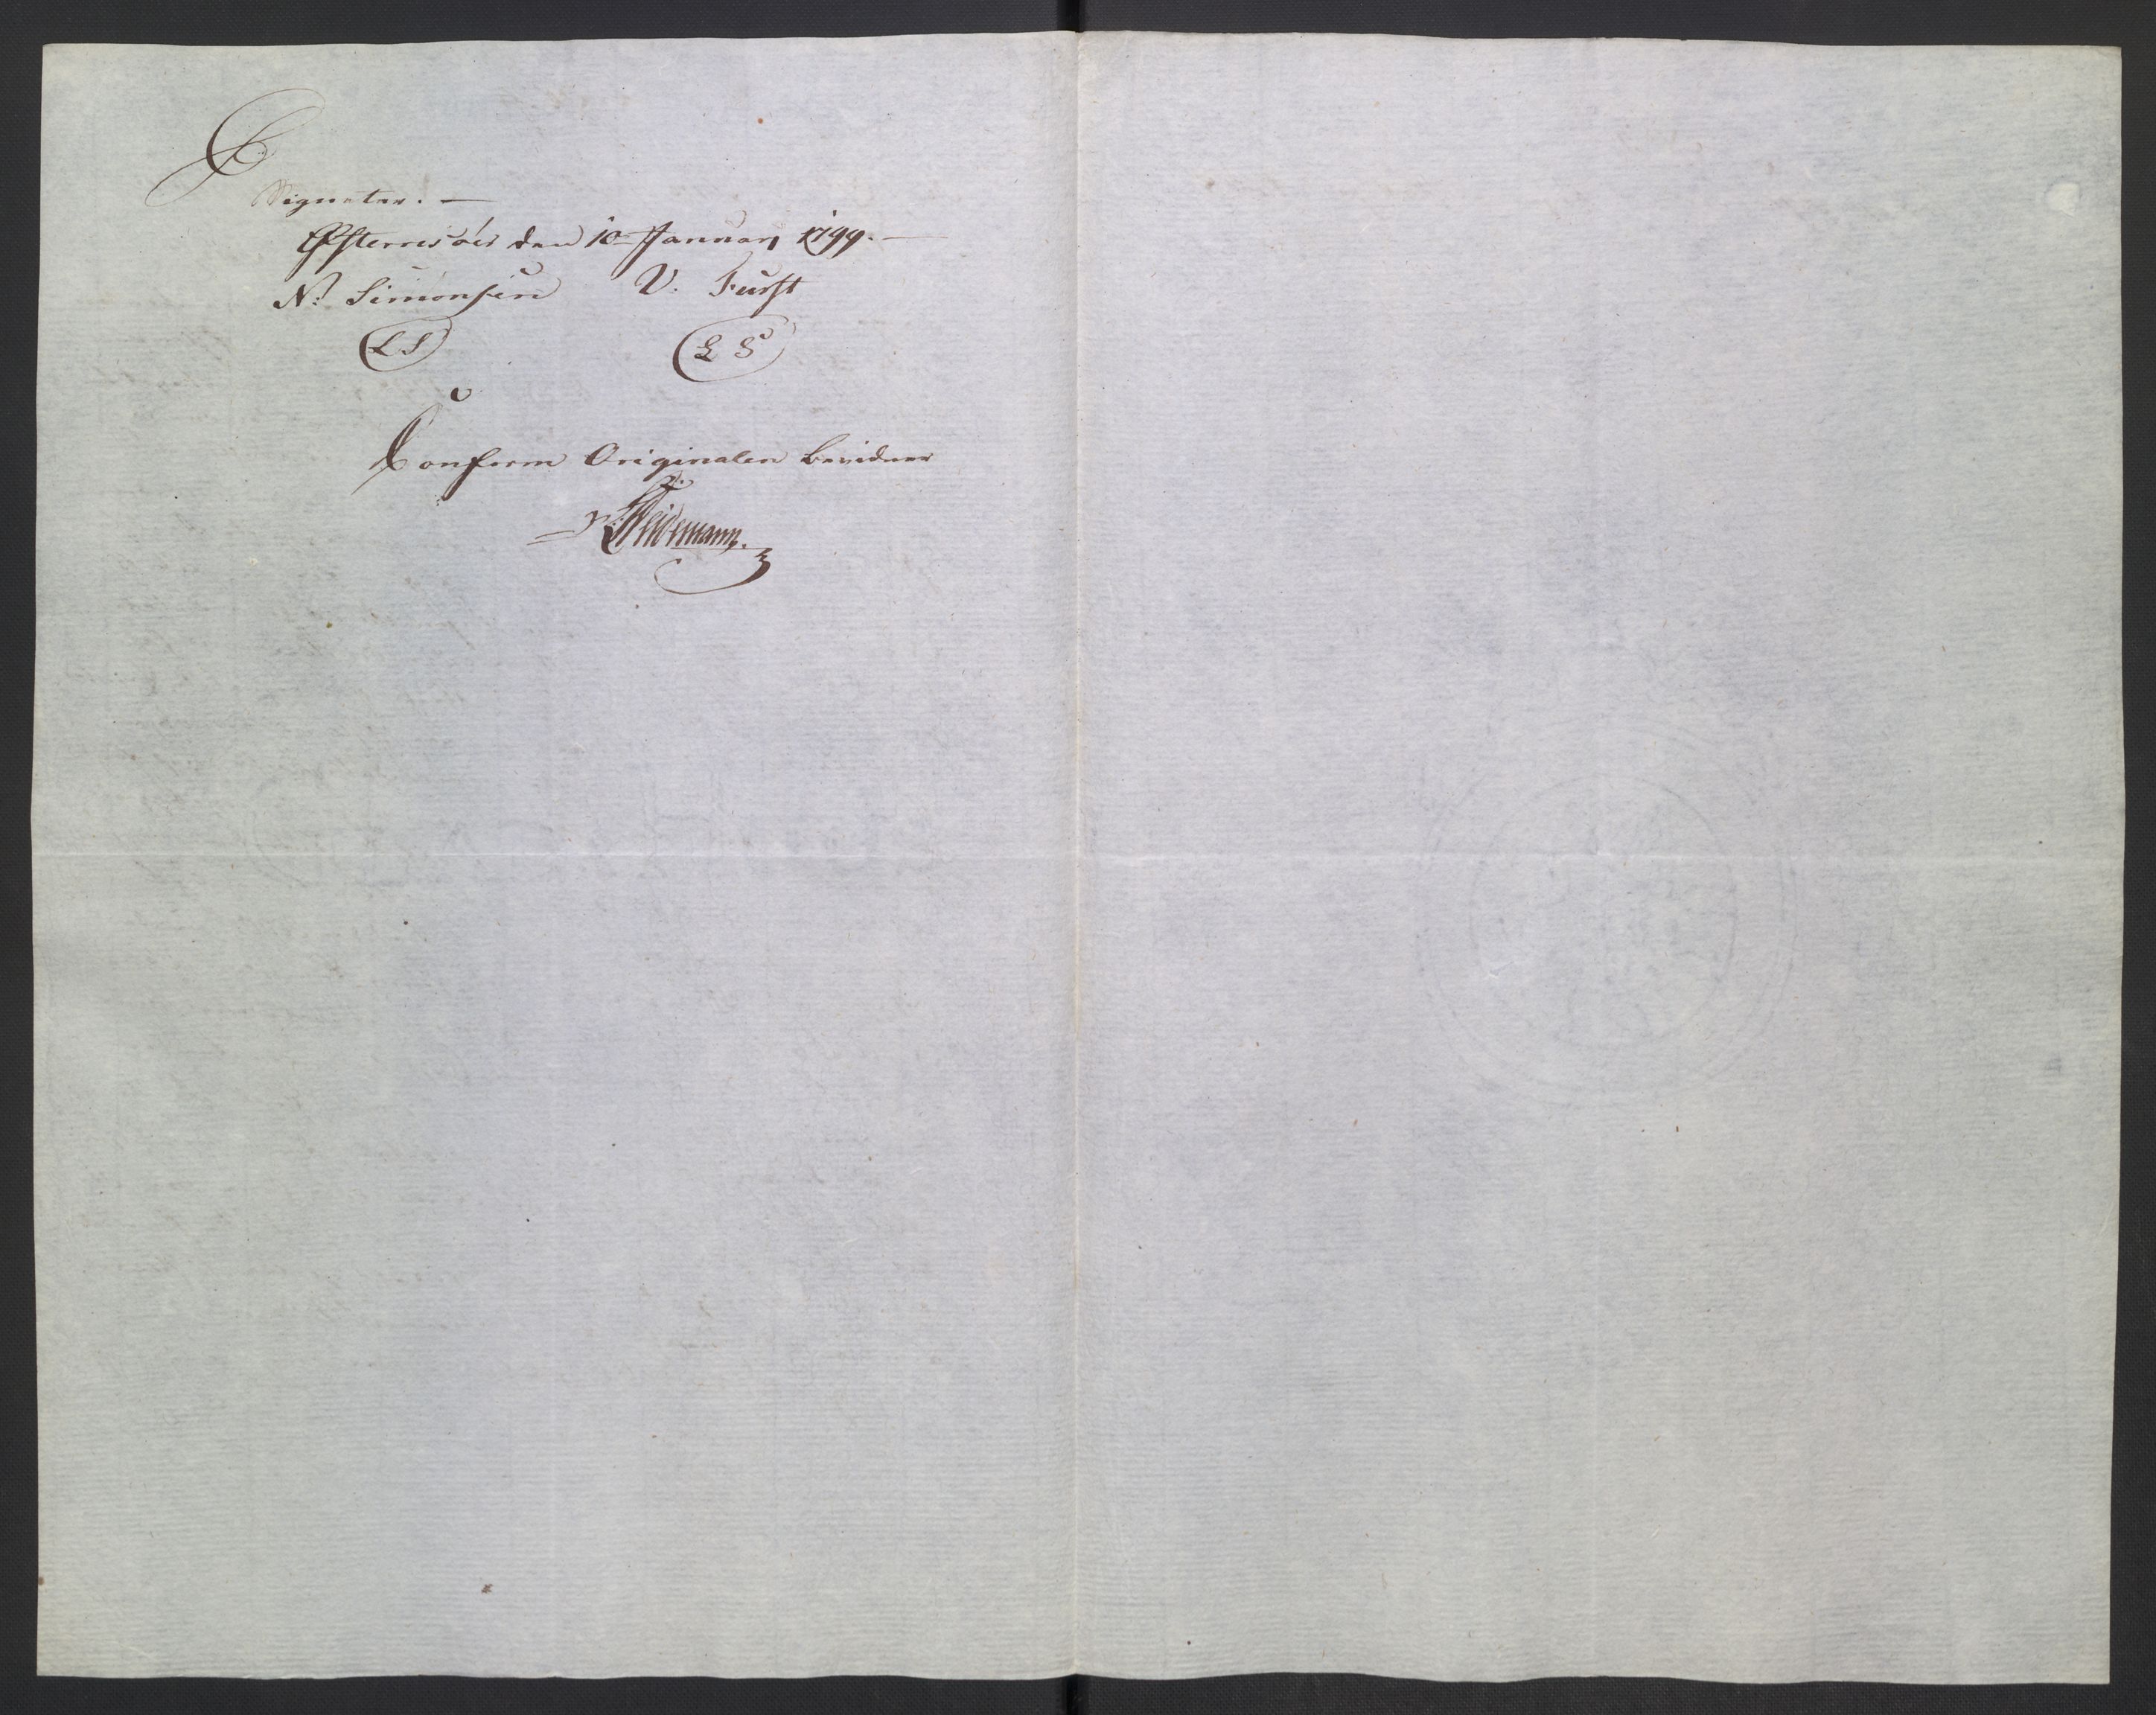 Signeter. —
Østerriisöer den 10 Januarj 1799. —
N. Simonsen V. Furst
LS LS
Conform Originalen bevidner
Weidemann.